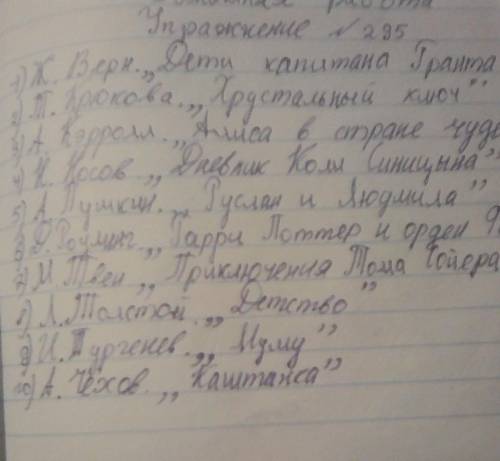 Домашняя работа
Упражнение №295
1) Ж. Верн. „Дети капитана Гранта
2) Т. Крюкова. „Хрустальный ключ"
3) А. Кэрролл. „Алиса в стране чуде
4) Н. Носов „Дневник Коли Синицына"
5) А. Пушкин. „Руслан и Людмила"
6) Д. Роулинг „Гарри Поттер и орден Ф
7) М. Твен „Приключения Тома Сойера
8) Л. Толстой. „Детство"
9) И. Тургенев. „Муму"
10) А. Чехов. „Каштанка"